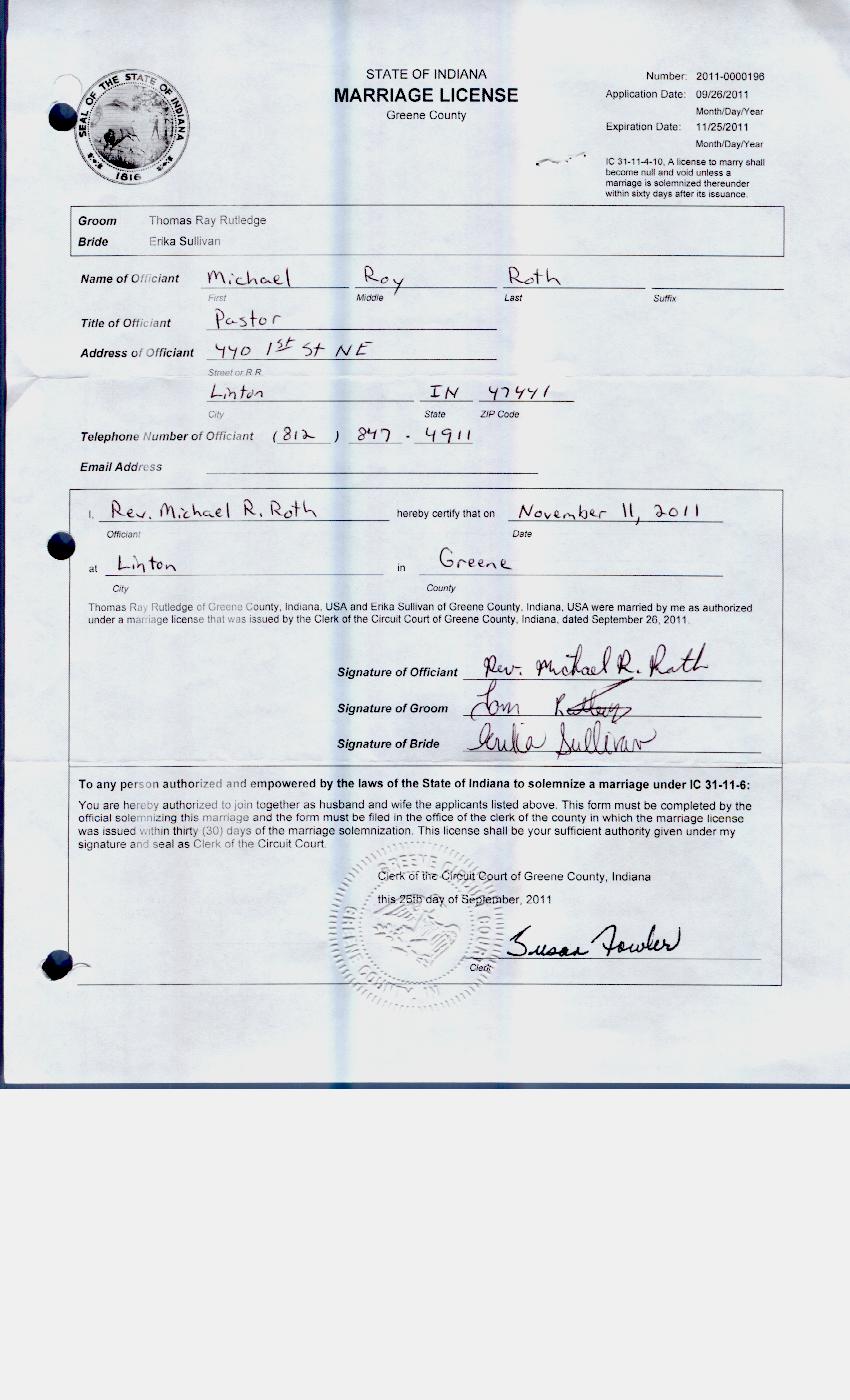 SEAL OF THE STATE OF INDIANA
1816
STATE OF INDIANA
MARRIAGE LICENSE
Greene County
Number: 2011-0000196
Application Date: 09/26/2011
Month/Day/Year
Expiration Date: 11/25/2011
Month/Day/Year
IC 31-11-4-10, A license to marry shall
become null and void unless a
marriage is solemnized thereunder
within sixty days after its issuance.
Groom Thomas Ray Rutledge
Bride Erika Sullivan
Name of Officiant Michael Roy Roth
First Middle Last Suffix
Title of Officiant Pastor
Address of Officiant 440 1st St NE
Street or R.R.
Linton IN 47441
City State ZIP Code
Telephone Number of Officiant (812) 847 - 4911
Email Address
I, Rev. Michael R. Roth hereby certify that on November 11, 2011
Officiant Date
at Linton in Greene
City County
Thomas Ray Rutledge of Greene County, Indiana, USA and Erika Sullivan of Greene County, Indiana, USA were married by me as authorized
under a marriage license that was issued by the Clerk of the Circuit Court of Greene County, Indiana, dated September 26, 2011.
Signature of Officiant Rev. Michael R. Roth
Signature of Groom Tom
Signature of Bride Erika Sullivan
To any person authorized and empowered by the laws of the State of Indiana to solemnize a marriage under IC 31-11-6:
You are hereby authorized to join together as husband and wife the applicants listed above. This form must be completed by the
official solemnizing this marriage and the form must be filed in the office of the clerk of the county in which the marriage license
was issued within thirty (30) days of the marriage solemnization. This license shall be your sufficient authority given under my
signature and seal as Clerk of the Circuit Court.
Clerk of the Circuit Court of Greene County, Indiana
this 26th day of September, 2011
Susan Fowler
Clerk